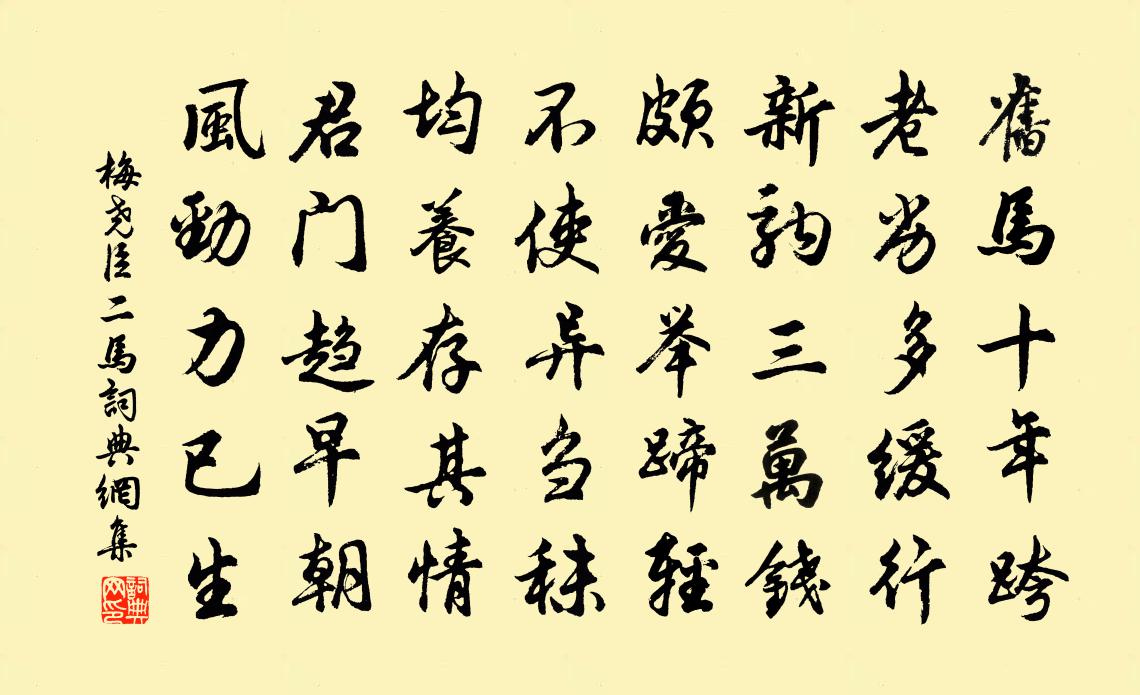 舊馬十年跨
老劣多緩行
新駒三萬錢
頗愛举蹄輕
不使异刍秣
均養存其情
君门趋早朝
風勁力已生
梅尧臣二馬詞典網集
詞典网印